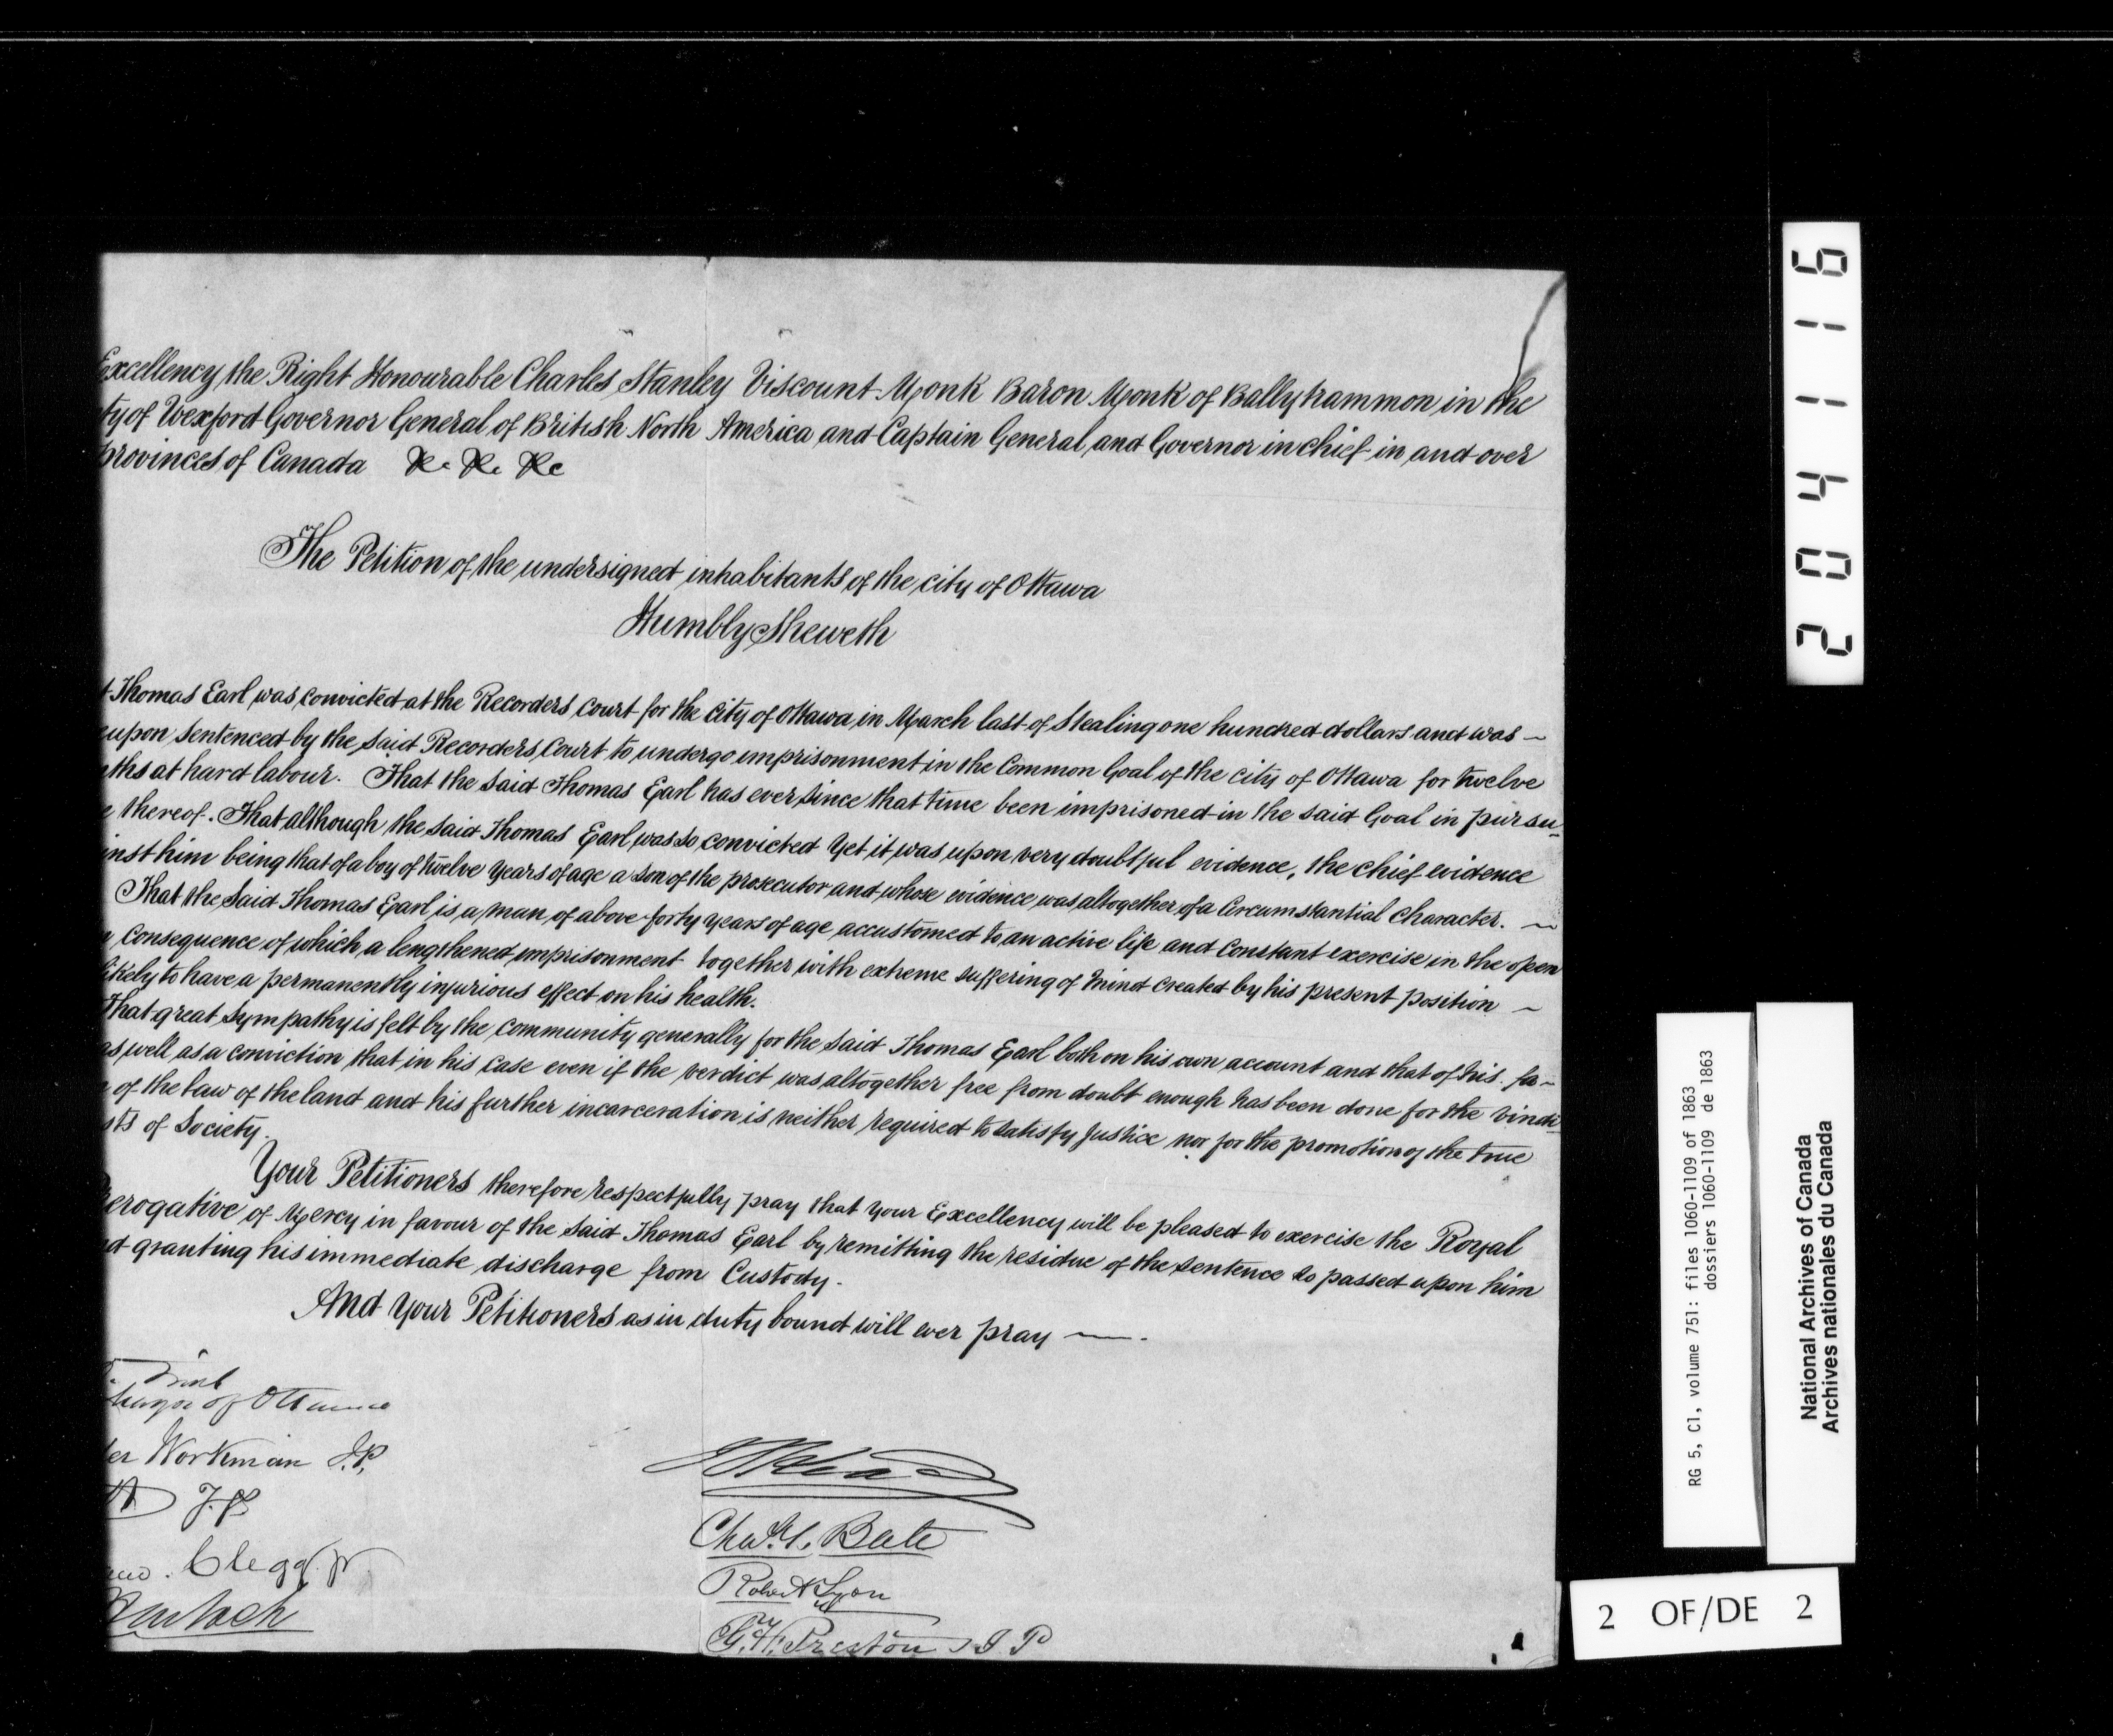 Excellency the Right Honourable Charles Stanley Viscount Monk Baron Monk of Ballytrammon in the
ty of Wexford Governor General of British North America and Captain General and Governor in chief in and over
provinces of Canada &c &c &c
The Petition of the undersigned inhabitants of the city of Ottawa
Humbly Sheweth
t Thomas Earl was convicted at the Recorders Court for the city of Ottawa in March last of Stealing one hundred dollars and was ~
eupon Sentenced by the said Recorders Court to undergo imprisonment in the Common Goal of the city of Ottawa for twelve
nths at hard labour. That the said Thomas Earl has ever since that time been imprisoned in the said Goal in pursu-
e thereof. That although the said Thomas Earl was so convicted yet it was upon very doubtful evidence, the chief evidence
inst him being that of a boy of twelve years of age a son of the prosecutor and whose evidence was altogether of a Circumstantial character. ~
That the said Thomas Earl is a man of above forty years of age accustomed to an active life and constant exercise in the open
n consequence of which a lengthened imprisonment together with extreme suffering of mind created by his present position ~
likely to have a permanently injurious effect on his health.
That great sympathy is felt by the community generally for the said Thomas Earl both on his own account and that of his fa-
as well as a conviction that in his case even if the verdict was altogether free from doubt enough has been done for the vindi-
n of the law of the land and his further incarceration is neither required to satisfy justice nor for the promotion of the true
sts of Society.
Your Petitioners therefore respectfully pray that your Excellency will be pleased to exercise the Royal
Perogative of Mercy in favour of the said Thomas Earl by remitting the residue of the sentence so passed upon him
nd granting his immediate discharge from Custody.
And your Petitioners as in duty bound will ever pray ~.
Mayor of Ottawa
er Workman J.P.
J.P
Clegg jr.
Chas. Bate
Robert Lyon
G.H. Preston J P
204116
RG 5, C1, volume 751: files 1060-1109 of 1863
dossiers 1060-1109 de 1863
National Archives of Canada
Archives nationales du Canada
2 OF/DE 2